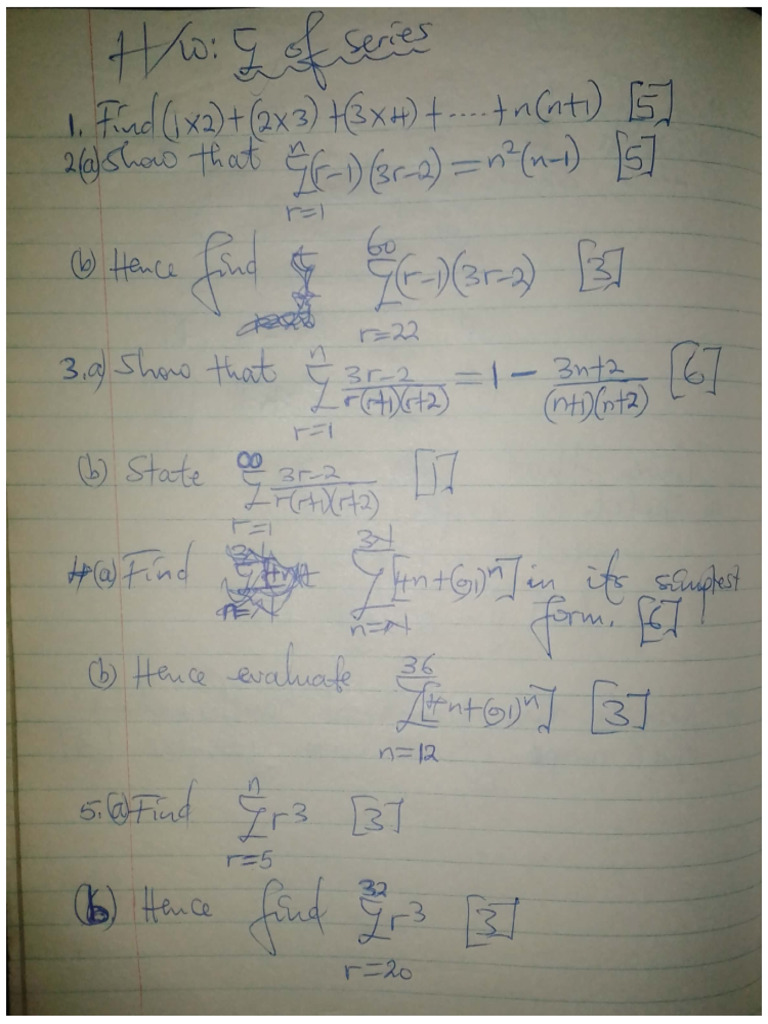 H/W: Σ of series
1. Find (1×2)+(2×3)+(3×4)+.....+n(n+1) [5]
2(a) Show that n Σ r=1 (r-1)(3r-2) = n²(n-1) [5]
(b) Hence find 60 Σ r=22 (r-1)(3r-2) [3]
3.a) Show that n Σ r=1 3r-2/r(r+1)(r+2) = 1 - 3n+2/(n+1)(n+2) [6]
(b) State ∞ Σ r=1 3r-2/r(r+1)(r+2) [1]
4(a) Find Σ [4n+(-1)ⁿ] in its simplest
form. [6]
(b) Hence evaluate 36 Σ n=12 [4n+(-1)ⁿ] [3]
5.(a) Find n Σ r=5 r³ [3]
(b) Hence find 32 Σ r=20 r³ [3]